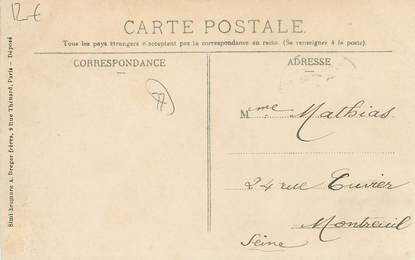 12€
CARTE POSTALE
Tous les pays étrangers n'acceptent pas la correspondance au recto. (Se renseigner à la poste).
CORRESPONDANCE
ADRESSE
77
Mme Mathias
24 rue Cuvier
Montreuil
Seine
Simi-bromure A. Breger frères, 9 Rue Thénard, Paris - Déposé